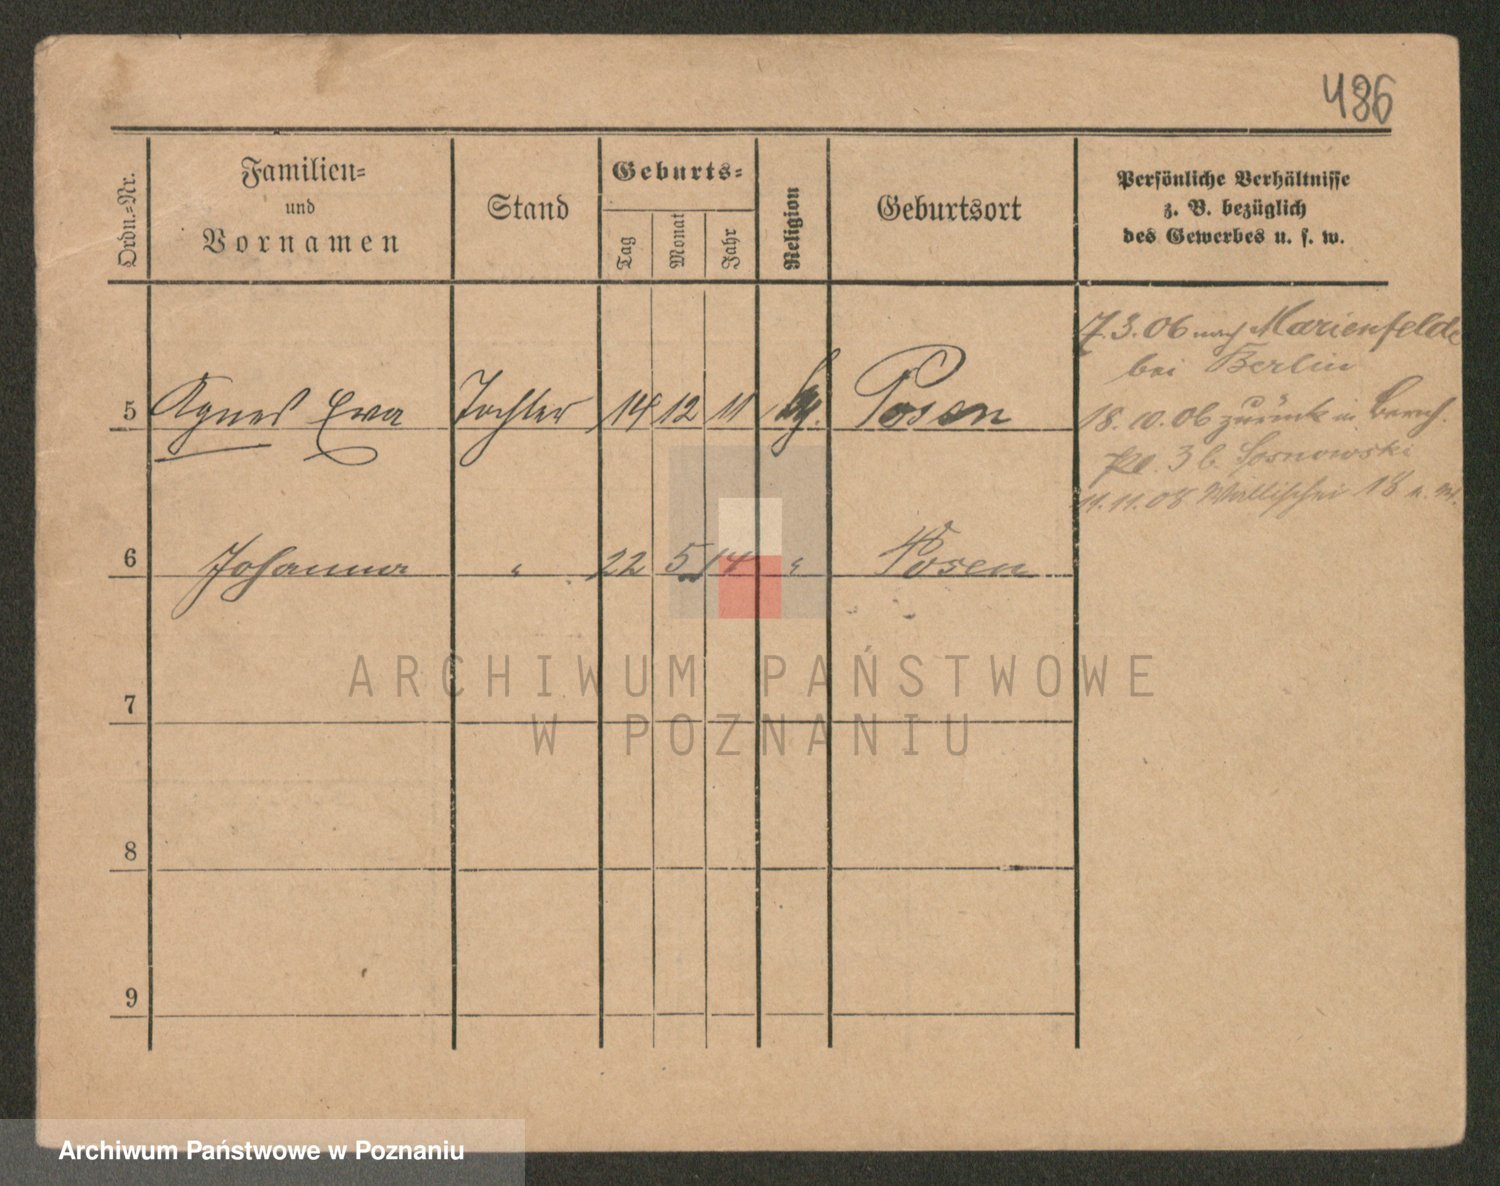 486
Ordn.=Nr.
Familien=
und
Vornamen
Stand
Geburts=
Tag
Monat
Jahr
Religion
Geburtsort
Persönliche Verhältnisse
z. B. bezüglich
des Gewerbes u. s. w.
7.3.06 nach Marienfelde
bei Berlin
5 Agnes Eva Tochter 14 12 11 Posen
18.10.06 zurück in
Pl. 3 b. Sosnowski
11.11.08 Wallischei 18
6 Johanna " 22 5 14 " Posen
7
8
9
ARCHIWUM PAŃSTWOWE
W POZNANIU
Archiwum Państwowe w Poznaniu